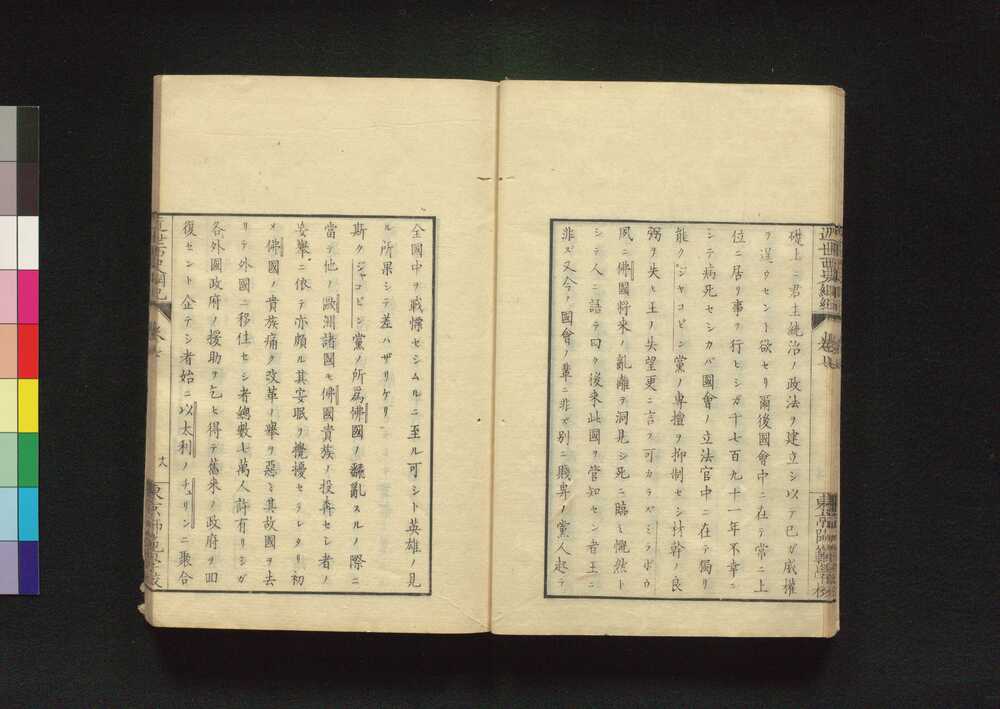 礎上ニ君主統治ノ政法ヲ建立シ以テ己ガ威權
ヲ逞ウセント欲セリ爾後國會中ニ在テ常ニ上
位ニ居リ事ヲ行ヒシガ千七百九十一年不幸ニ
シテ病死セシカバ國會ノ立法官中ニ在テ獨リ
能クジャコビン黨ノ專擅ヲ抑制セシ材幹ノ良
弼ヲ失ヒ王ノ失望更ニ言フ可カラズミラボウ
夙ニ佛國將來ノ亂離ヲ洞見シ死ニ臨ミ慨然ト
シテ人ニ語テ曰ク後来此國ヲ管知セン者王ニ
非ズ又今ノ國會ノ輩ニ非ズ別ニ賤卑ノ黨人起テ
全國中ヲ戰慄セシムルニ至ル可シト英雄ノ見
ル所果シテ差ハザリケリ
斯クジャコビン黨ノ所爲佛國ノ騷亂スルノ際ニ
當テ他ノ歐洲諸國モ佛國貴族ノ投奔セシ者ノ
妄擧ニ依テ亦頗ル其安眠ヲ攪擾セラレタリ初
メ佛國ノ貴族痛ク改革ノ擧ヲ惡ミ其故國ヲ去
リテ外國ニ移住セシ者總數七萬人許有リシガ
各外國政府ノ援助ヲ乞ヒ得テ舊来ノ政府ヲ回
復セント企テシ者始ニ以太利ノチュリンニ聚合
卷七
東京師範學校